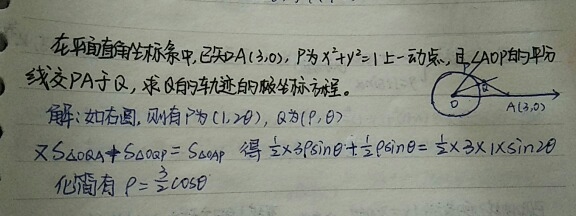 在平面直角坐标系中,已知A(3,0),P为x²+y²=1上一动点,且∠AOP的平分
线交PA于Q,求Q的轨迹的极坐标方程。
解:如右图,则有P为(1,2θ),Q为(ρ,θ)
又S△OQA+S△OQP=S△OAP 得 ½×3ρsinθ+½ρsinθ=½×3×1×sin2θ
化简有 ρ=3/2cosθ
P
Q
O
A(3,0)